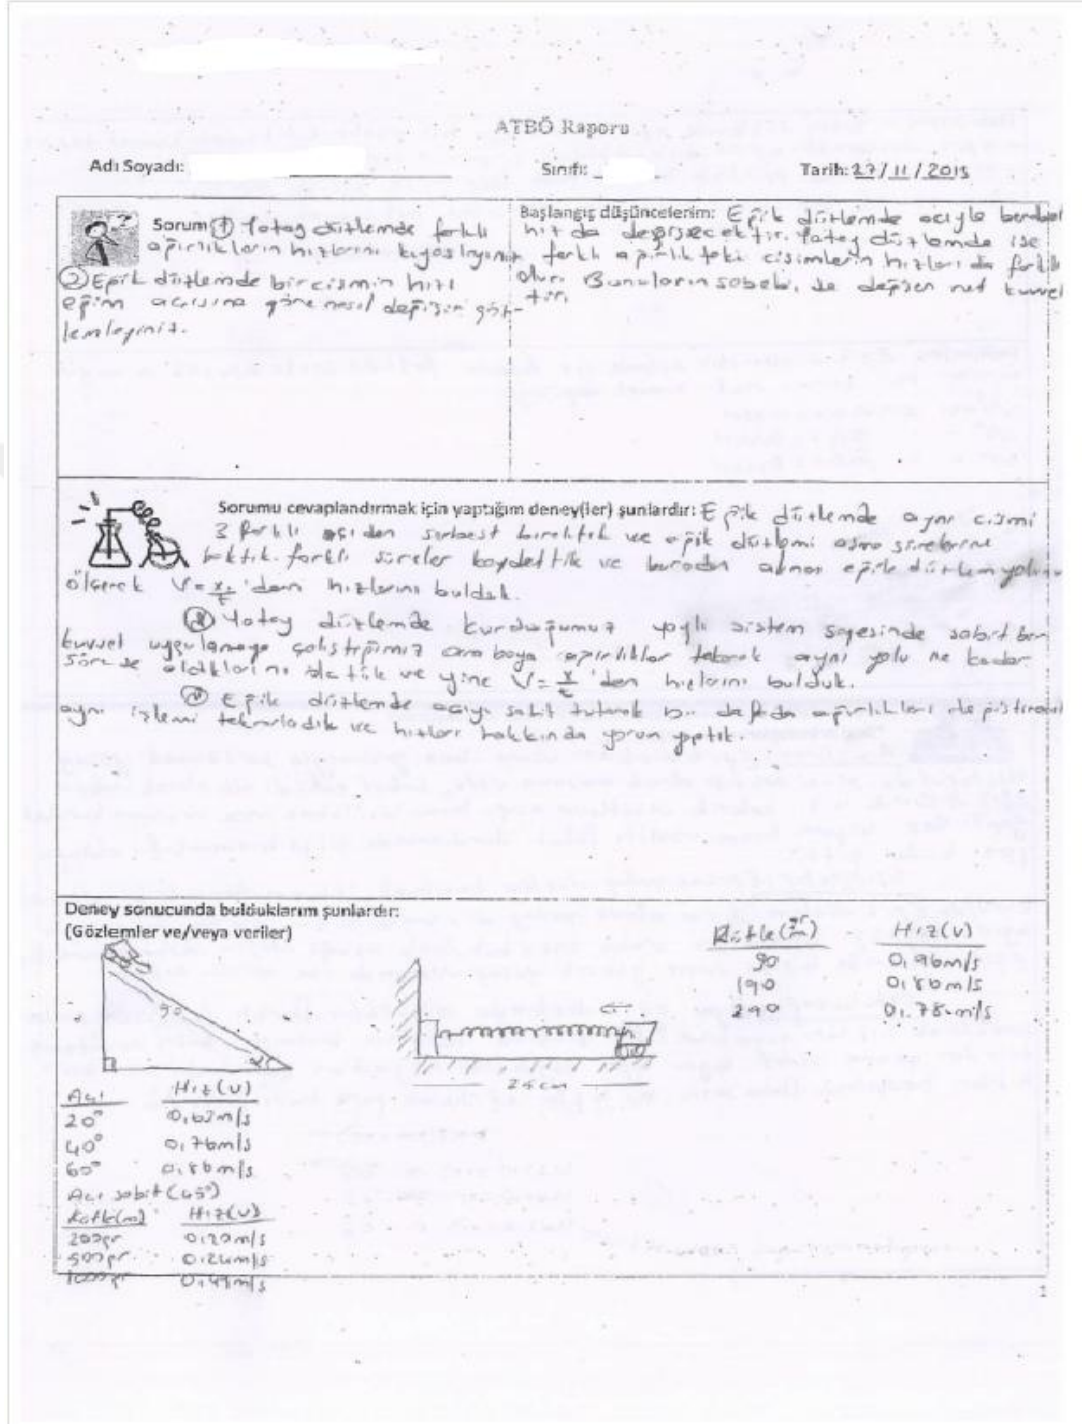 ATBÖ Raporu
Adı Soyadı:
Sınıfı:
Tarih: 27/11/2015
Sorum: ① Yatay düzlemde farklı
ağırlıkların hızlarını kıyaslayınız
② Eğik düzlemde bir cismin hızı
eğim açısına göre nasıl değişir göz-
lemleyiniz.
Başlangıç düşüncelerim: Eğik düzlemde açıyla beraber
hız da değişecektir. Yatay düzlemde ise
farklı ağırlıktaki cisimlerin hızları da farklı
olur. Bunların sebebi de değişen net kuvvet
tir.
Sorumu cevaplandırmak için yaptığım deney(ler) şunlardır: Eğik düzlemde aynı cismi
3 farklı açıdan serbest bıraktık ve eğik düzlemi aşma sürelerine
baktık. farklı süreler kaydettik ve buradan alınan eğik düzlem yolunu
ölçerek V = x/t 'den hızlarını bulduk.
Yatay düzlemde kurduğumuz yaylı sistem sayesinde sabit bir
kuvvet uygulamaya çalıştığımız arabaya ağırlıklar takarak aynı yolu ne kadar
sürede aldıklarını ve yine V = x/t 'den hızlarını bulduk.
Eğik düzlemde açıyı sabit tutarak bu defa da ağırlıkları değiştirerek
aynı işlemi tekrarladık ve hızları hakkında yorum yaptık.
Deney sonucunda bulduklarım şunlardır:
(Gözlemler ve/veya veriler)
90
α
25cm
Kütle (gr) Hız (v)
90 0,96m/s
190 0,86m/s
290 0,78m/s
Açı Hız (v)
20° 0,62m/s
40° 0,76m/s
60° 0,86m/s
Açı sabit (45°)
Kütle(m) Hız(v)
200gr 0,20m/s
500gr 0,24m/s
1000gr 0,49m/s
1